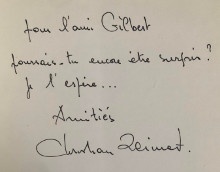 pour l'ami Gilbert
pourrais-tu encore être surpris ?
je l'espère...
Amitiés
Christian